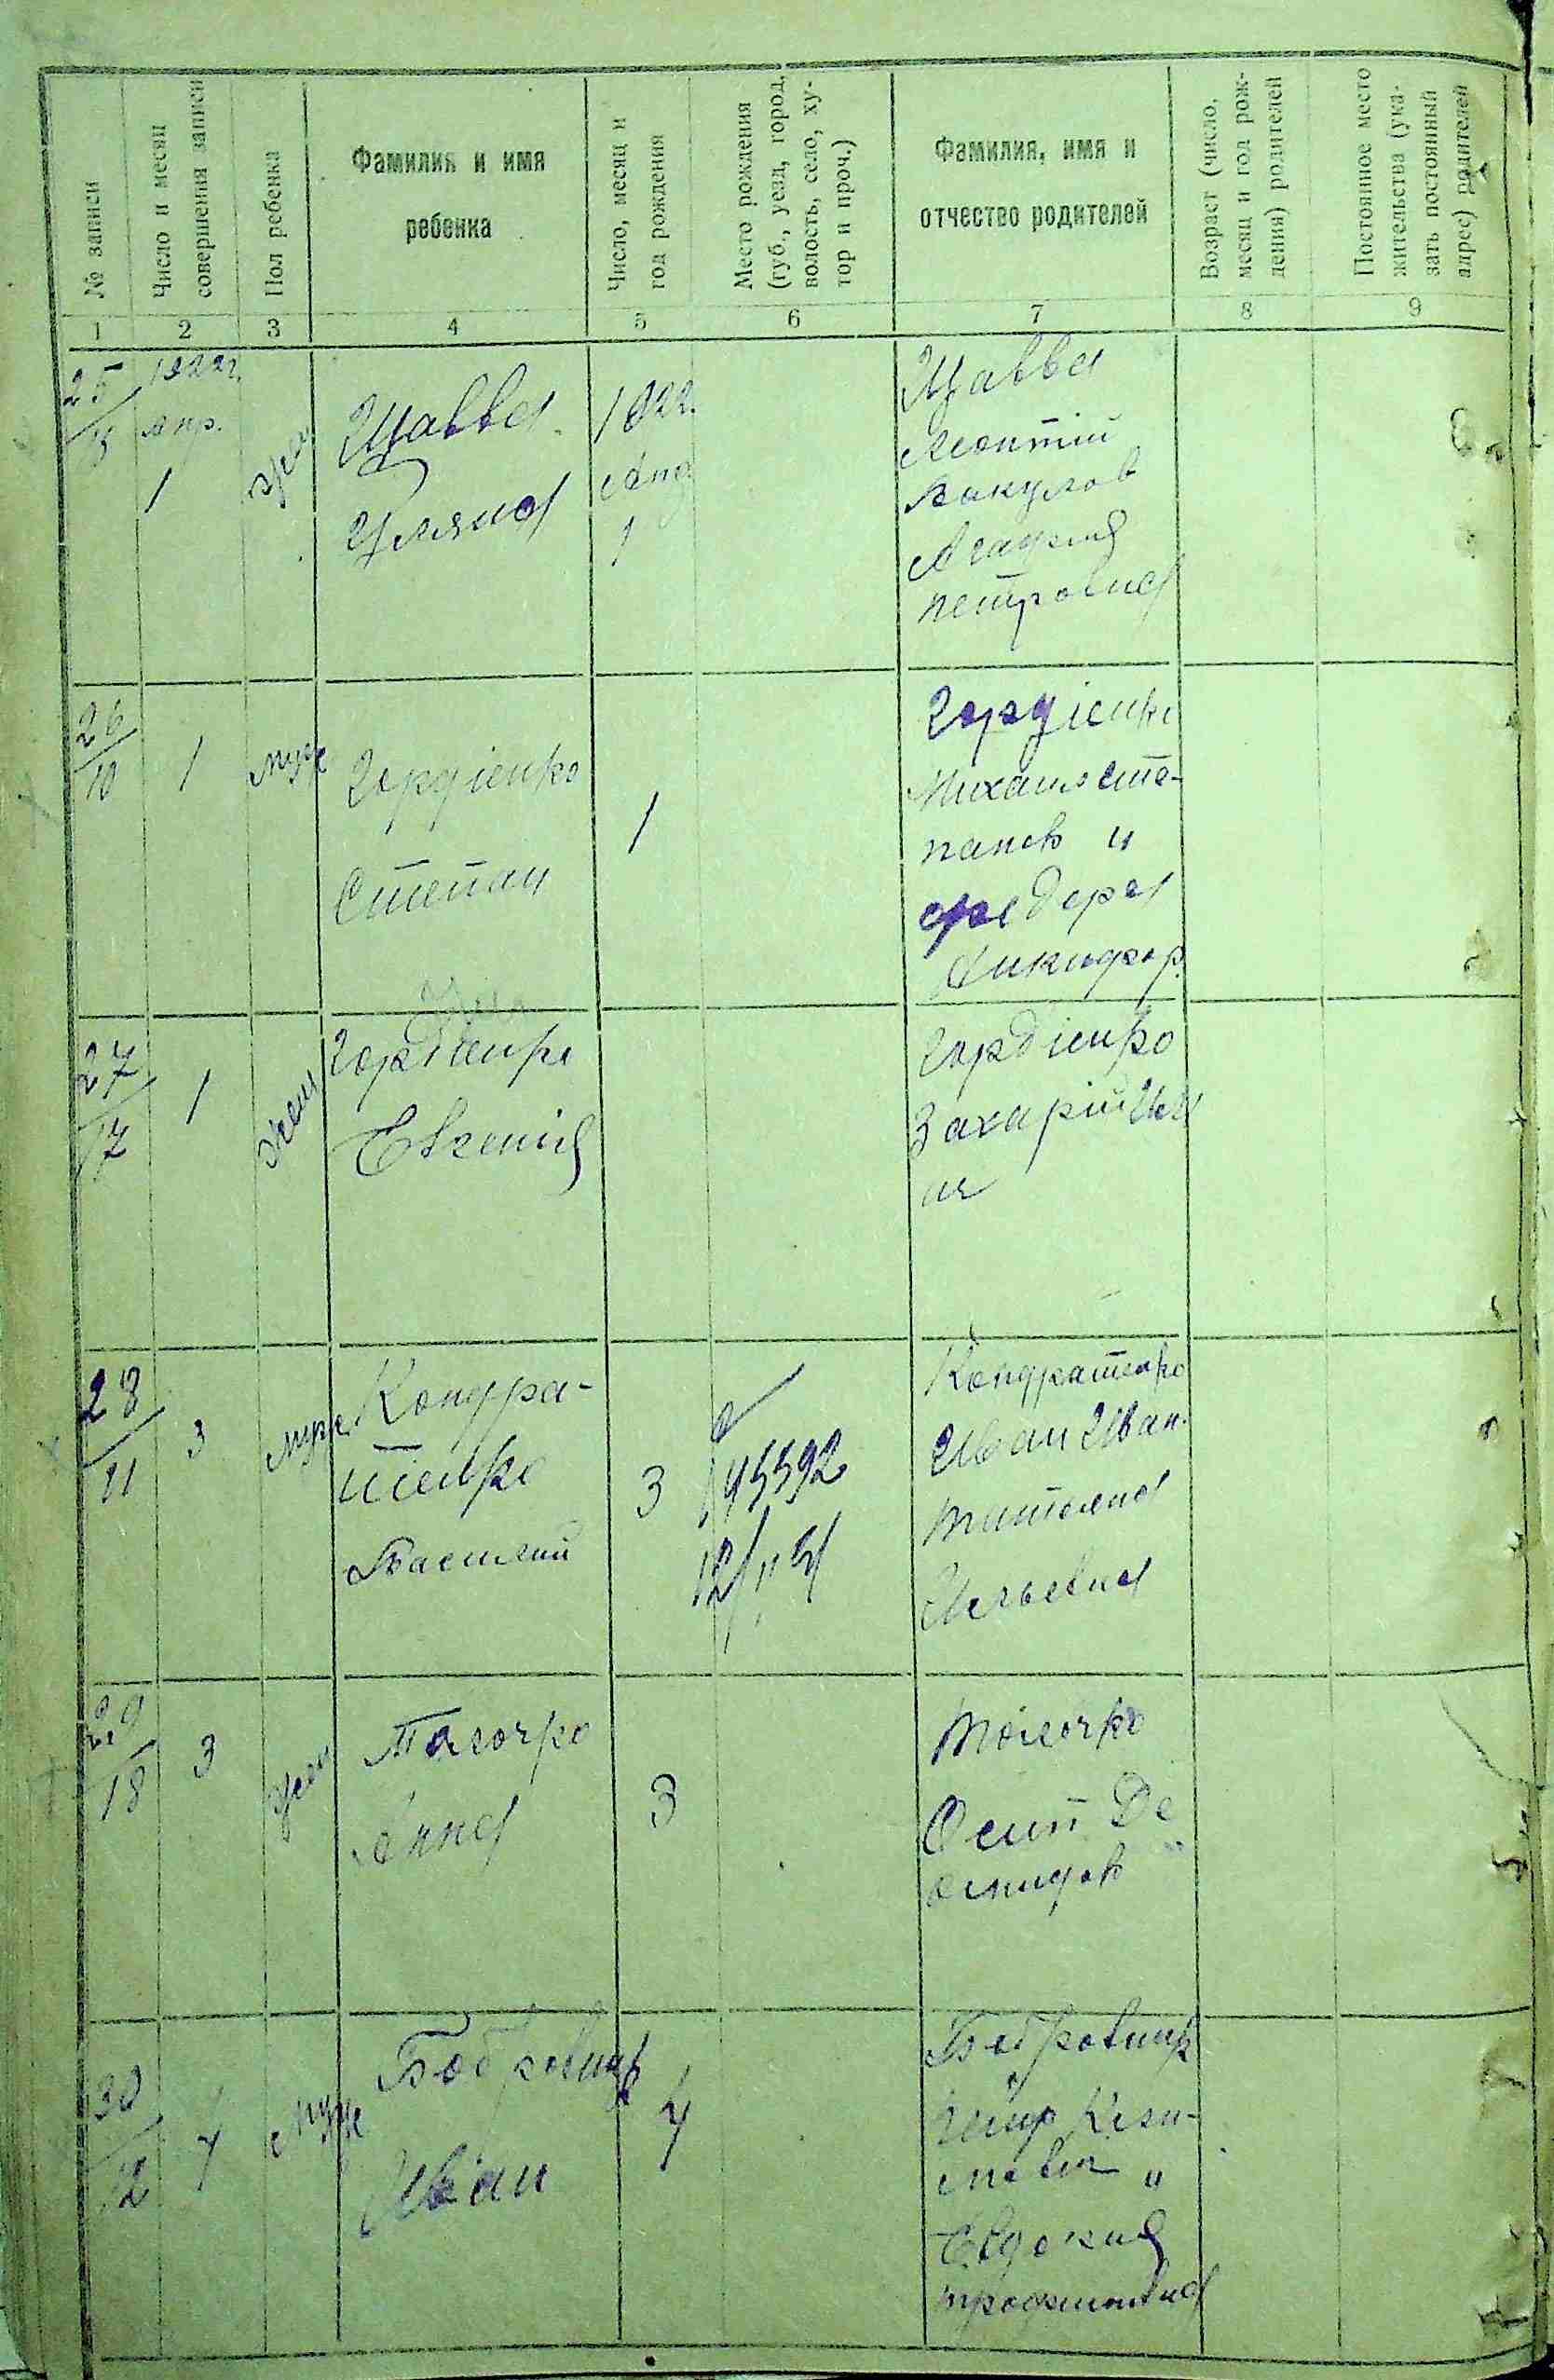 № записи
Число и месяц
совершения записи
Пол ребенка
Фамилия и имя
ребенка
Число, месяц и
год рождения
Место рождения
(губ., уезд, город,
волость, село, ху-
тор и проч.)
Фамилия, имя и
отчество родителей
Возраст (число,
месяц и год рож-
дения) родителей
Постоянное место
жительства (ука-
зать постоянный
адрес) родителей
1 2 3 4 5 6 7 8 9
25
1922г.
апр.
1
жен
Щавва
Уляна
1922.
Апр
1
Щавва
Леонтий
Вакулов
Агафия
Петровна
26/10
1
муж
Гордіенко
Степан
1
Гордіенко
Михаил Сте-
панов и
Федора
Никифор.
27/17
1
жен
Гордіенко
Евгенія
Гордіенко
Захарій
28/11
3
муж
Кондра-
тенко
Василий
3
45592
Кондратенко
Иван Иван.
Татьяна
Ильевна
29/18
3
жен
Толочко
Анна
3
Толочко
Осип Де
30/12
4
Муж
Бобровник
Иван
4
Бобровник
Евдокия
Трофимовна